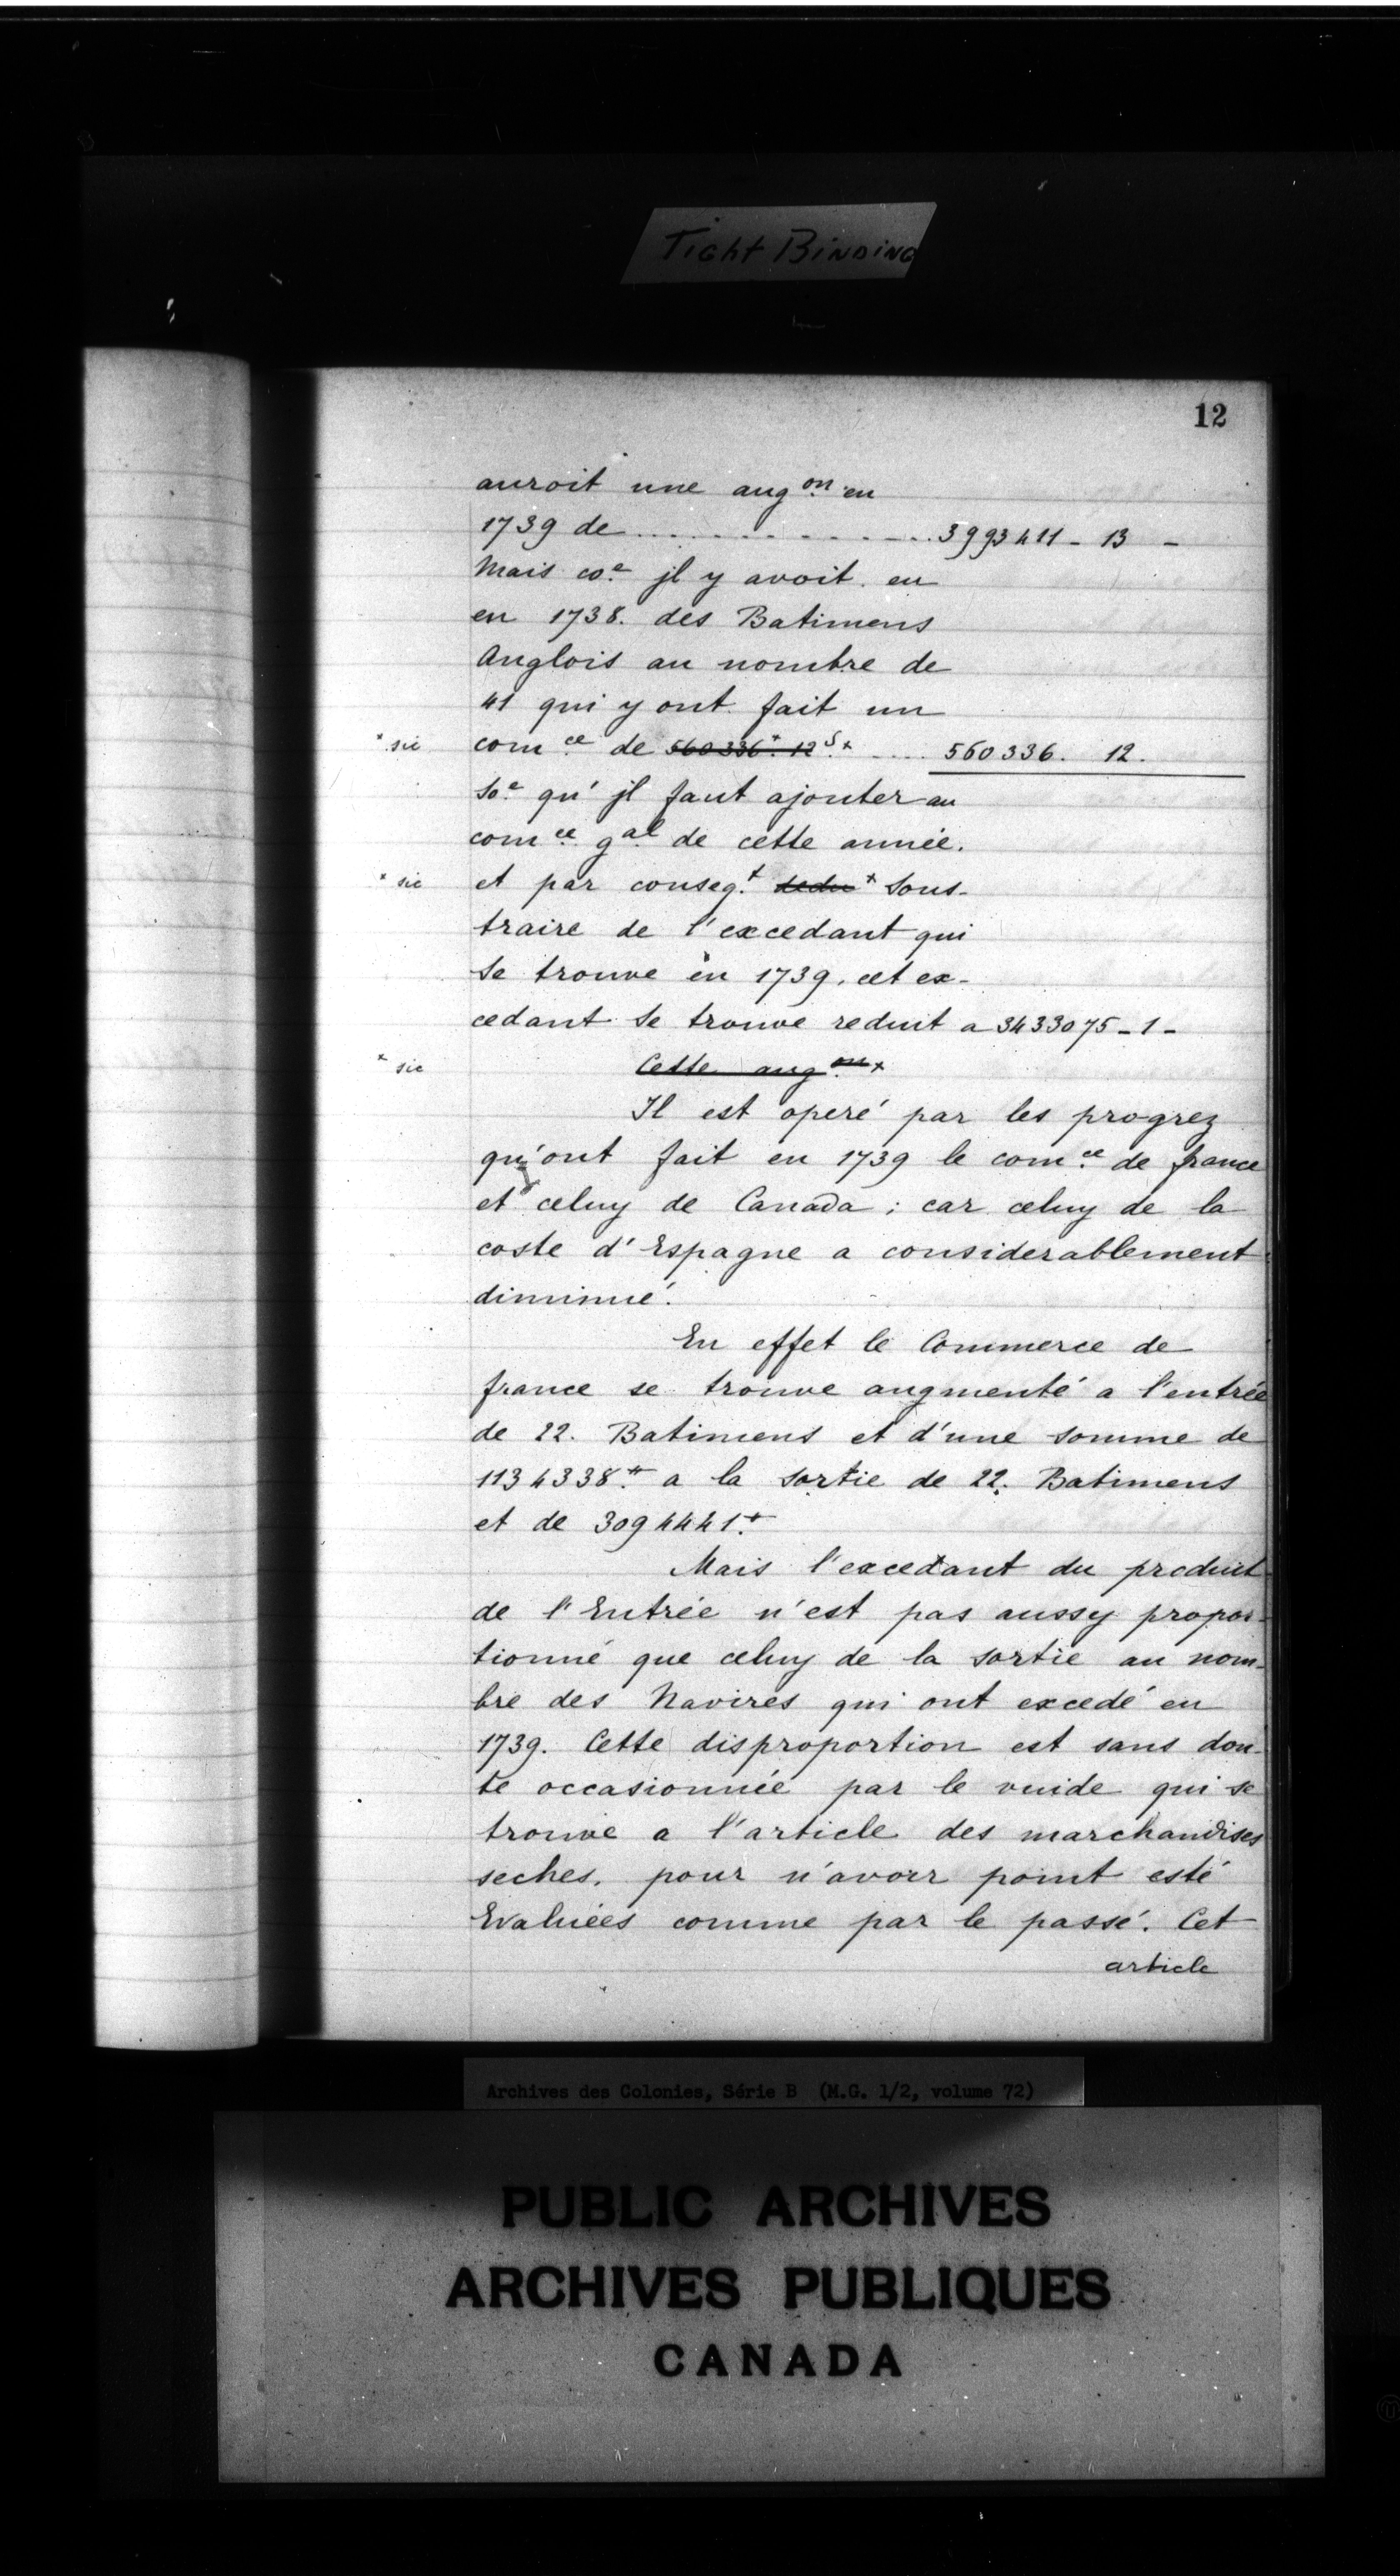 Tight Binding
12
auroit une aug.on en
1739 de ............... 3993411 - 13 -
Mais co.e jl y avoit eu
en 1738. des Batimens
Anglois au nombre de
41 qui y ont fait un
* sic com.ce de 560336.# 12 s.* .... 560336. 12.
So.e qu'jl faut ajouter au
com.ce g.al de cette année.
* sic et par conseq.t dedu* Sous-
traire de l'excedant qui
Se trouve en 1739. cet ex-
cedant Se trouve reduit a 3433075 - 1 -
* sic Cette aug.on*
Il est operé par les progrez
qu'ont fait en 1739 le com.ce de france
et celuy de Canada ; car celuy de la
coste d'Espagne a considerablement
diminué.
En effet le Commerce de
france se trouve augmenté a l'entrée
de 22. Batimens et d'une somme de
1134338.# a la Sortie de 22. Batimens
et de 3094441.#
Mais l'excedant du produit
de l'Entrée n'est pas aussy propor-
tionné que celuy de la sortie au nom-
bre des Navires qui ont excedé en
1739. Cette disproportion est sans dou-
te occasionnée par le vuide qui se
trouve a l'article des marchandises
seches. pour n'avoir point esté
Evaluées comme par le passé. Cet
article
Archives des Colonies, Série B (M.G. 1/2, volume 72)
PUBLIC ARCHIVES
ARCHIVES PUBLIQUES
CANADA